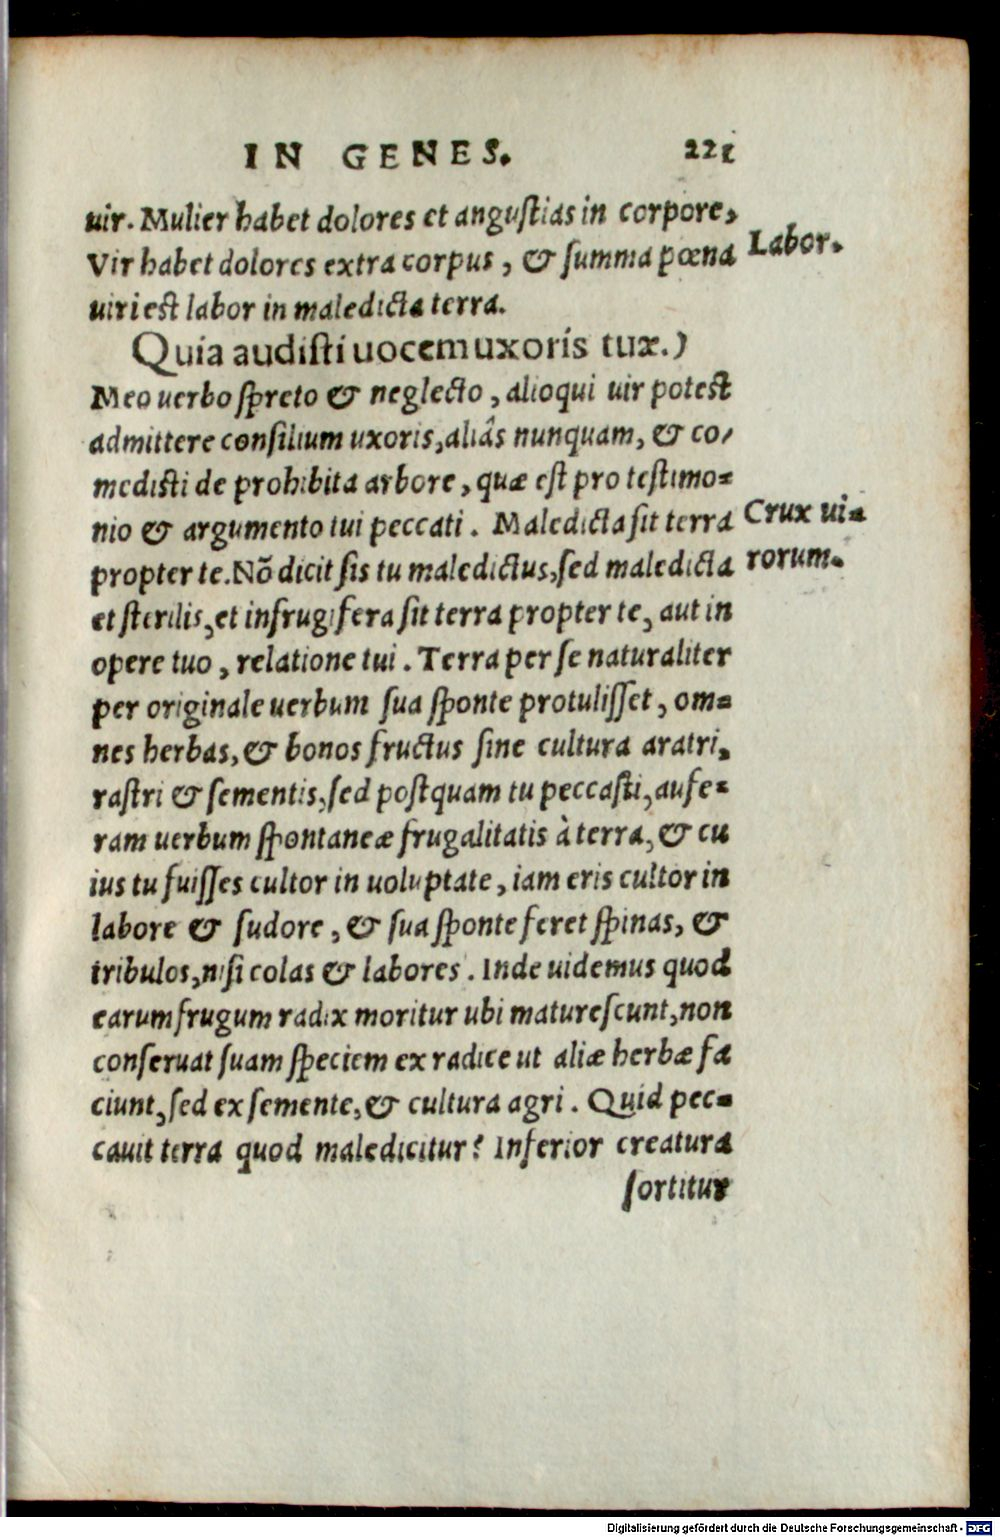 IN GENES. 221
uir. Mulier habet dolores et angustias in corpore,
Vir habet dolores extra corpus, & summa pœna
Labor.
uiri est labor in maledicta terra.
Quia audisti uocem uxoris tuæ.)
Meo uerbo spreto & neglecto, alioqui uir potest
admittere consilium uxoris, aliâs nunquam, & co/
medisti de prohibita arbore, quæ est pro testimo=
nio & argumento tui peccati. Maledicta sit terra
Crux ui=
propter te. Nõ dicit sis tu maledictus, sed maledicta
rorum.
et sterilis, et infrugifera sit terra propter te, aut in
opere tuo, relatione tui. Terra per se naturaliter
per originale uerbum sua sponte protulisset, om=
nes herbas, & bonos fructus sine cultura aratri,
rastri & sementis, sed postquam tu peccasti, aufe=
ram uerbum spontaneæ frugalitatis à terra, & cu
ius tu fuisses cultor in uoluptate, iam eris cultor in
labore & sudore, & sua sponte feret spinas, &
tribulos, nisi colas & labores. Inde uidemus quod
earum frugum radix moritur ubi maturescunt, non
conseruat suam speciem ex radice ut aliæ herbæ fa
ciunt, sed ex semente, & cultura agri. Quid pec=
cauit terra quod maledicitur? Inferior creatura
sortitur
Digitalisierung gefördert durch die Deutsche Forschungsgemeinschaft - DFG